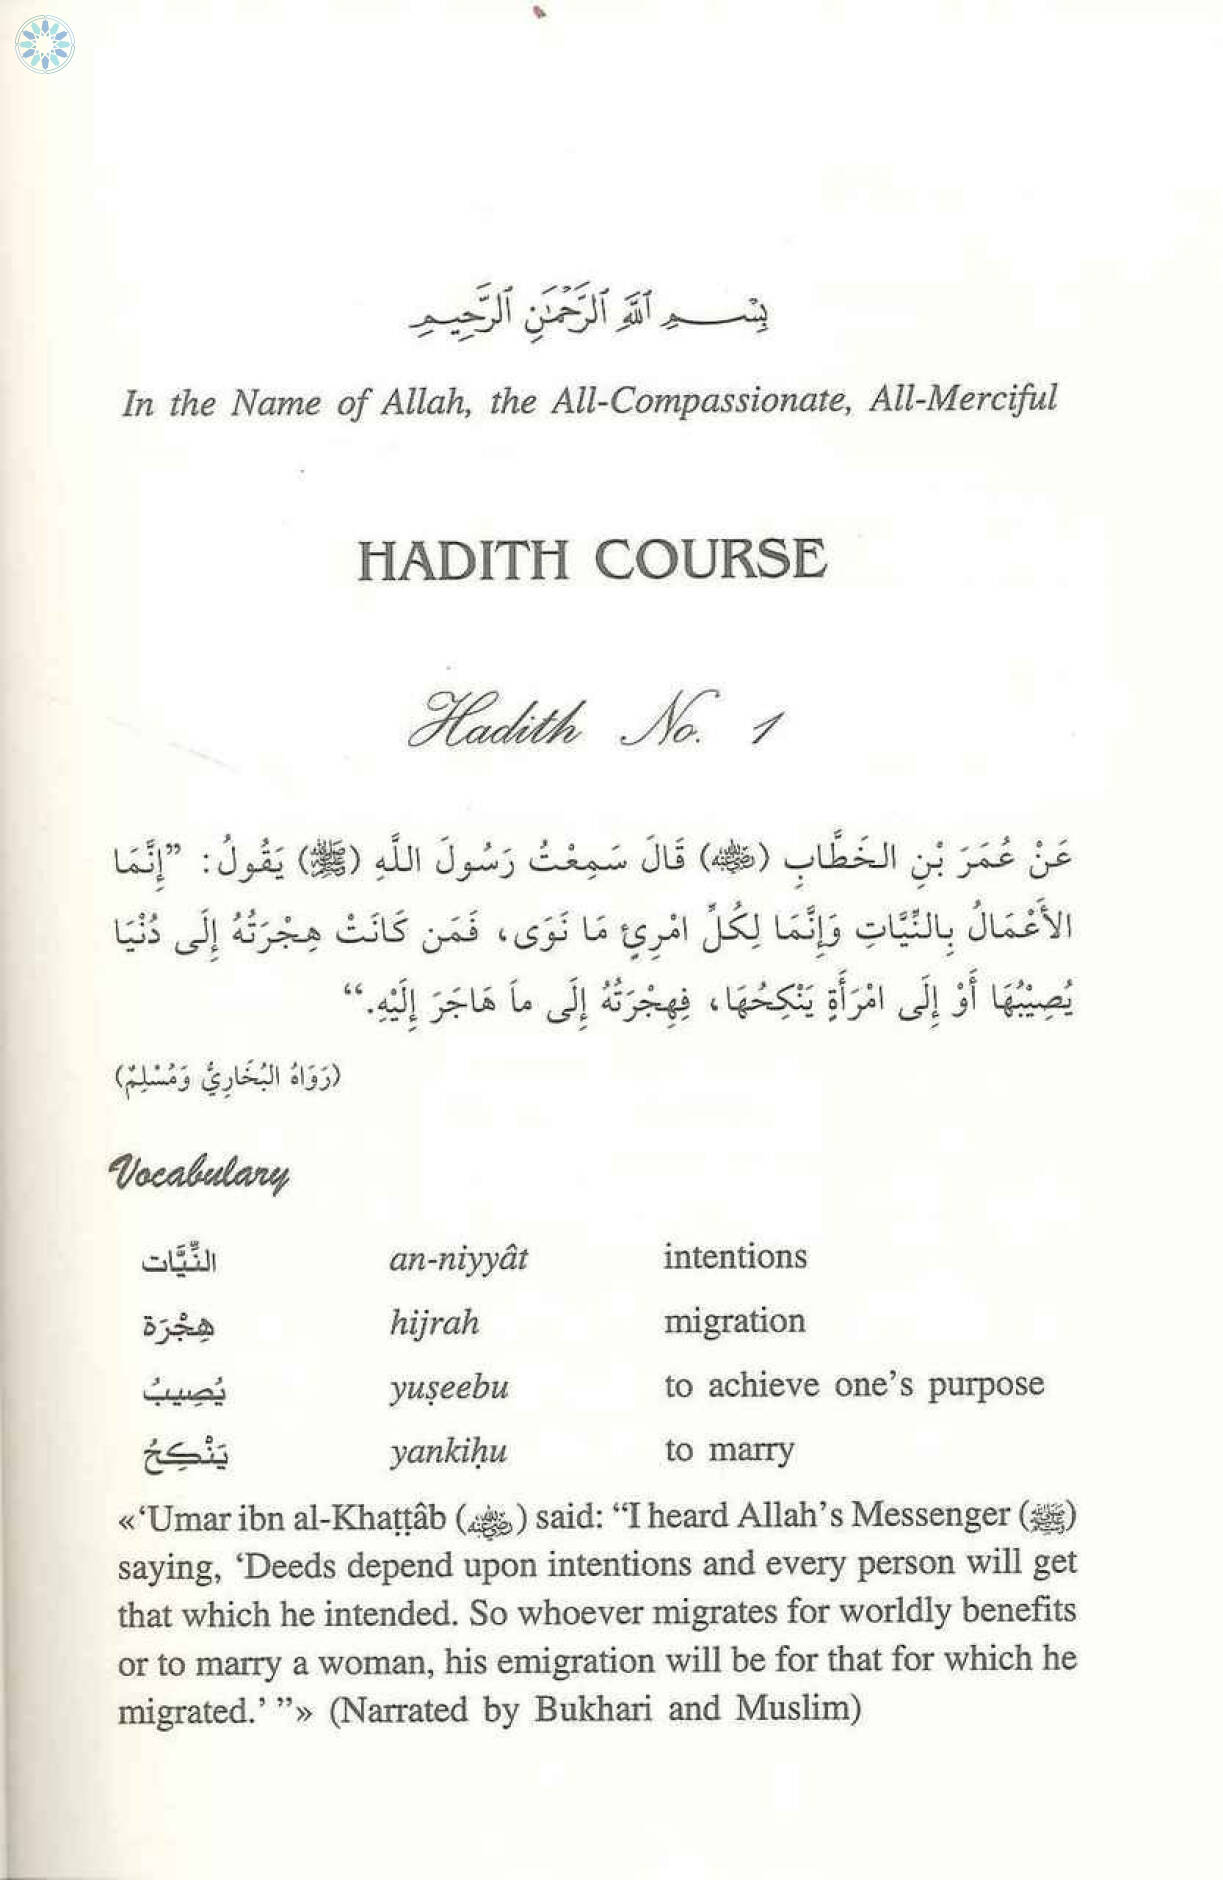 بِسْمِ ٱللَّهِ ٱلرَّحْمَٰنِ ٱلرَّحِيمِ
In the Name of Allah, the All-Compassionate, All-Merciful
HADITH COURSE
Hadith No. 1
عَنْ عُمَرَ بْنِ الخَطَّابِ (رضي الله عنه) قَالَ سَمِعْتُ رَسُولَ اللَّهِ (ﷺ) يَقُولُ: ”إِنَّمَا
الأَعْمَالُ بِالنِّيَّاتِ وَإِنَّمَا لِكُلِّ امْرِئٍ مَا نَوَى، فَمَن كَانَتْ هِجْرَتُهُ إِلَى دُنْيَا
يُصِيْبُهَا أَوْ إِلَى امْرَأَةٍ يَنْكِحُهَا، فِهِجْرَتُهُ إِلَى ماَ هَاجَرَ إِلَيْهِ.“
(رَوَاهُ البُخَارِيُّ وَمُسْلِمٌ)
Vocabulary
النِّيَّات an-niyyât intentions
هِجْرَة hijrah migration
يُصِيبُ yuṣeebu to achieve one’s purpose
يَنْكِحُ yankiḥu to marry
«‘Umar ibn al-Khaṭṭâb (رضي الله عنه) said: “I heard Allah’s Messenger (ﷺ)
saying, ‘Deeds depend upon intentions and every person will get
that which he intended. So whoever migrates for worldly benefits
or to marry a woman, his emigration will be for that for which he
migrated.’ ”» (Narrated by Bukhari and Muslim)